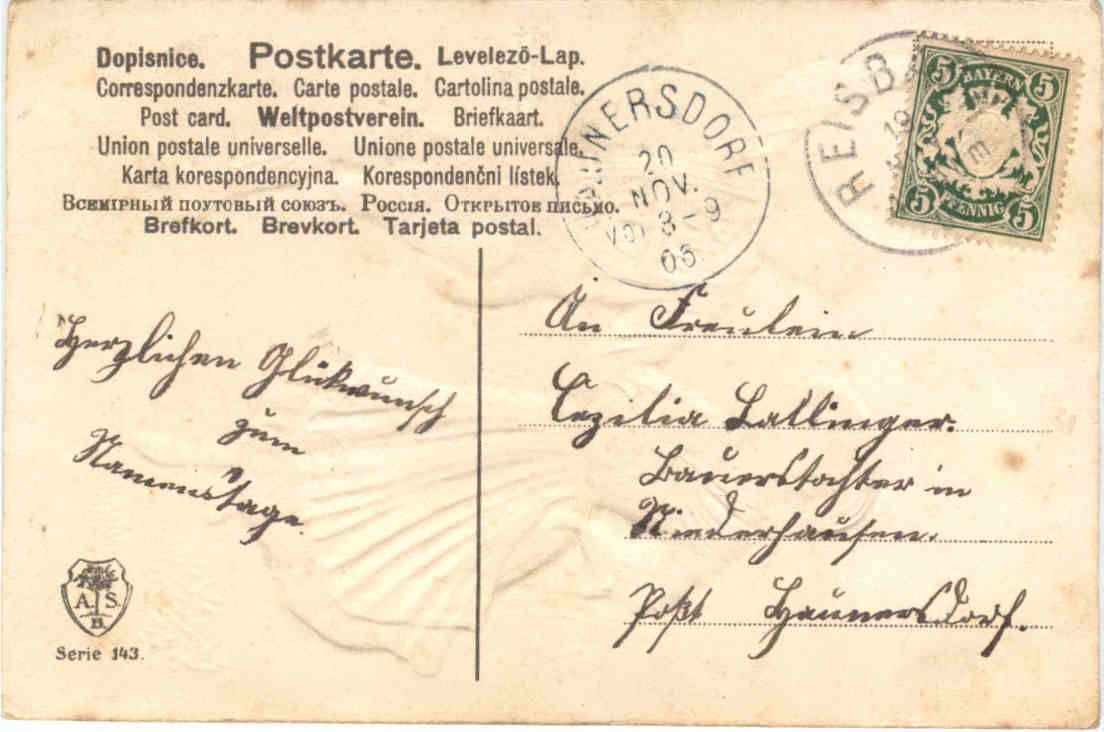 Dopisnice. Postkarte. Levelezö-Lap.
Correspondenzkarte. Carte postale. Cartolina postale.
Post card. Weltpostverein. Briefkaart.
Union postale universelle. Unione postale universale.
Karta korespondencyjna. Korespondenčni lístek.
Всемірный поутовый союзъ. Россія. Открытое письмо.
Brefkort. Brevkort. Tarjeta postal.
HAUNERSDORF
20
NOV.
Vor 8-9
05
REISBA
5 BAYERN 5
5 PFENNIG 5
Herzlichen Glükwunsch
zum
Namenstage
An Freulein
Cezilia Lallinger.
Bauerstochter in
Niederhausen.
Poßt Haunersdorf.
A. S.
B.
Serie 143.